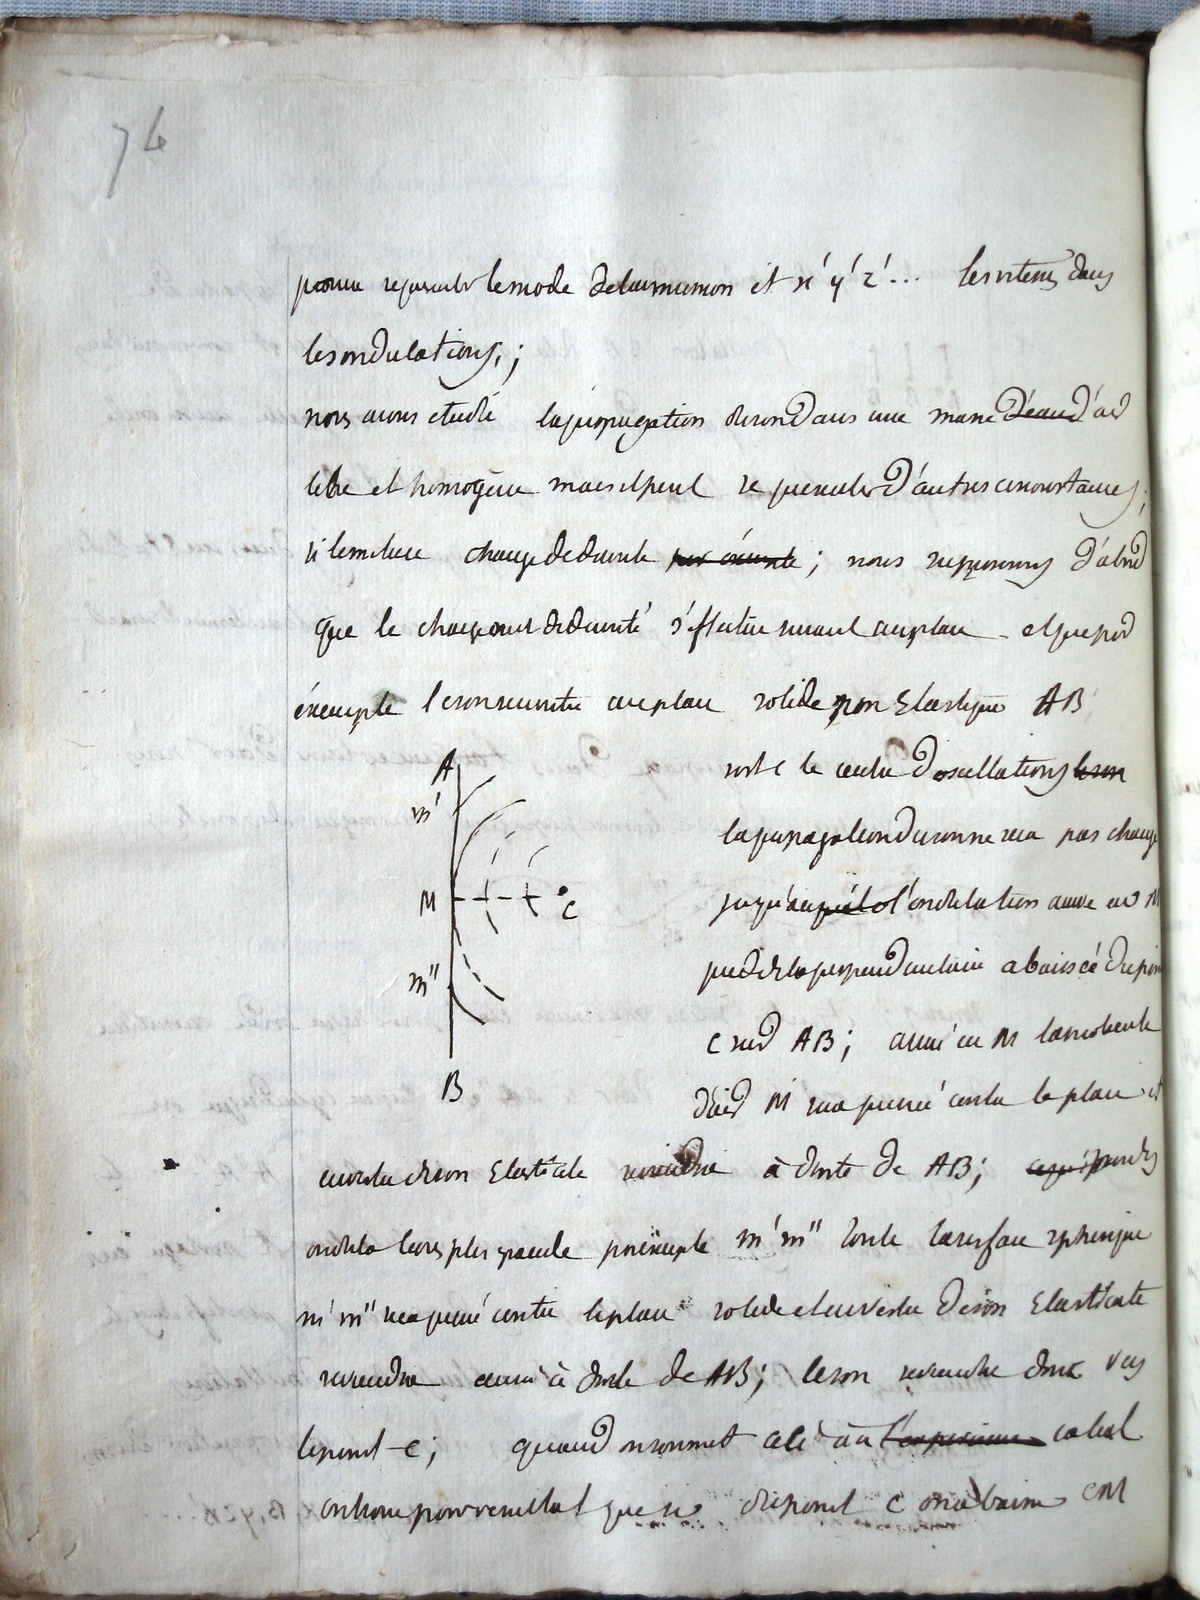 74
pourra representer le mode de l'air mu mon et x' y' z'... les vitesses dans
les ondulations;
nous avons etudié la propagation du son dans une masse d'eau d'air
libre et homogène mais il peut se presenter d'autres circonstances;
si le milieu change de densité par exemple; nous supposerons d'abord
que le changement de densité s'effectue suivant un plan et que par
éxemple le son rencontre un plan solide non Elastique AB
A
m'
M
C
m"
B
soit C le centre d'oscillations le son
la propagation du son ne sera pas changé
jusqu'au l'ondulation arrive en M
pied de la perpendiculaire abaissée du point
C sur AB; arrivé en M la molecule
d'air M sera pressée contre le plan et
en vertu de son Elasticité reviendra à droite de AB;
ondulations plus grande par éxemple m' m" toute la surface spherique
m' m" sera pressé contre le plan solide et en vertu de son Elasticité
reviendra aussi à droite de AB; le son reviendra donc vers
le point C; quand on soumet cela au l'experience calcul
on trouve pour resultat que si du point C on abaisse une